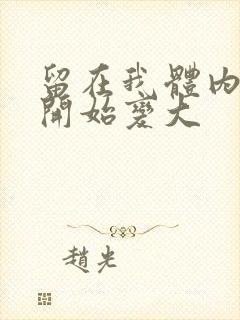 留在我體內
開始變大
趙光